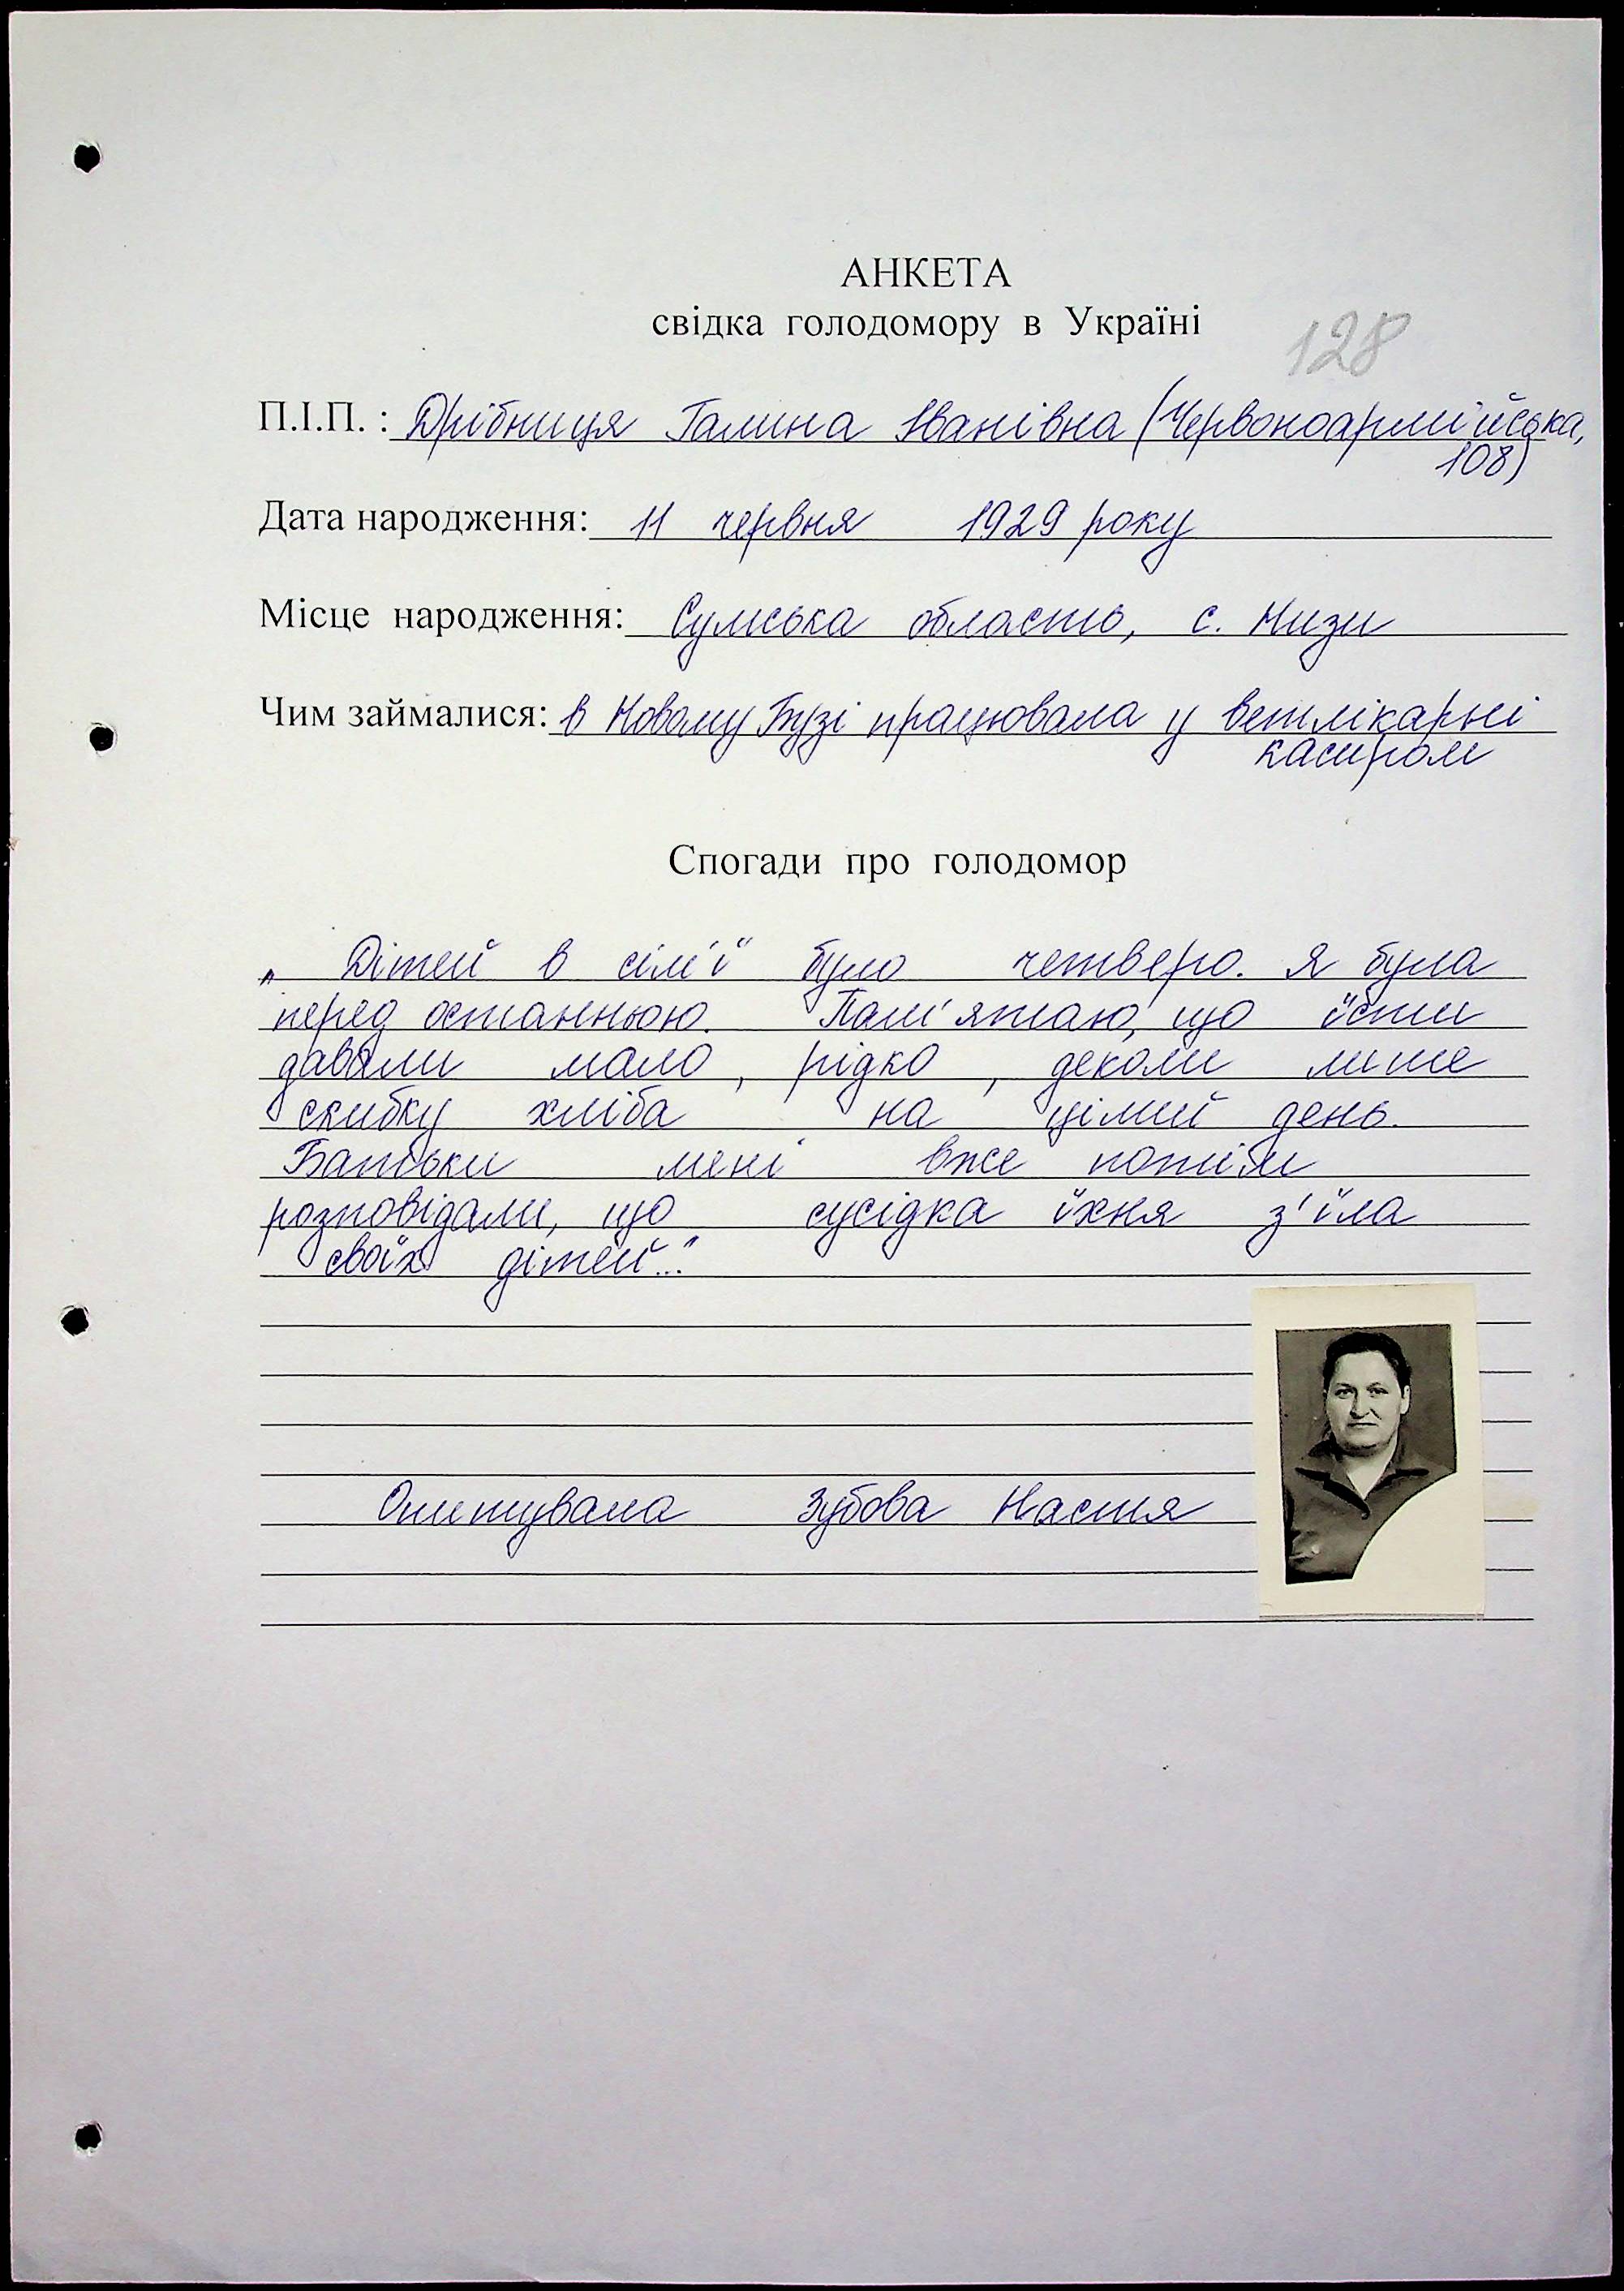 АНКЕТА
свідка голодомору в Україні
128
П.І.П. : Дрібниця Галина Іванівна (Червоноармійська,
108)
Дата народження: 11 червня 1929 року
Місце народження: Сумська область, с. Низи
Чим займалися: в Новому Бузі працювала у ветлікарні
касиром
Спогади про голодомор
„ Дітей в сім'ї було четверо. Я була
перед останньою. Пам'ятаю, що їсти
давали мало, рідко, деколи лише
скибку хліба на цілий день.
Батьки мені вже потім
розповідали, що сусідка їхня з'їла
своїх дітей..."
Опитувала Зубова Настя